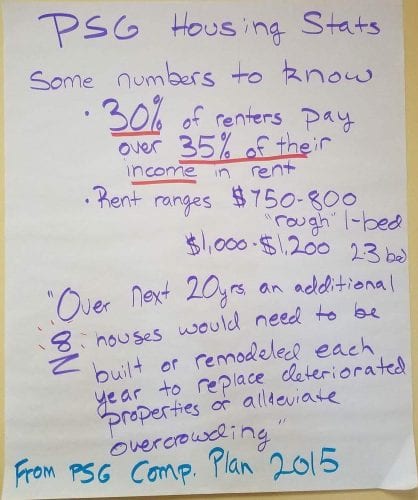 PSG Housing Stats
Some numbers to know
• 30% of renters pay
over 35% of their
income in rent
• Rent ranges $750-800
"rough" 1-bed
$1,000-$1,200 2-3 bd
"Over next 20yrs, an additional
8 houses would need to be
built or remodeled each
year to replace deteriorated
properties or alleviate
overcrowding"
From PSG Comp. Plan 2015